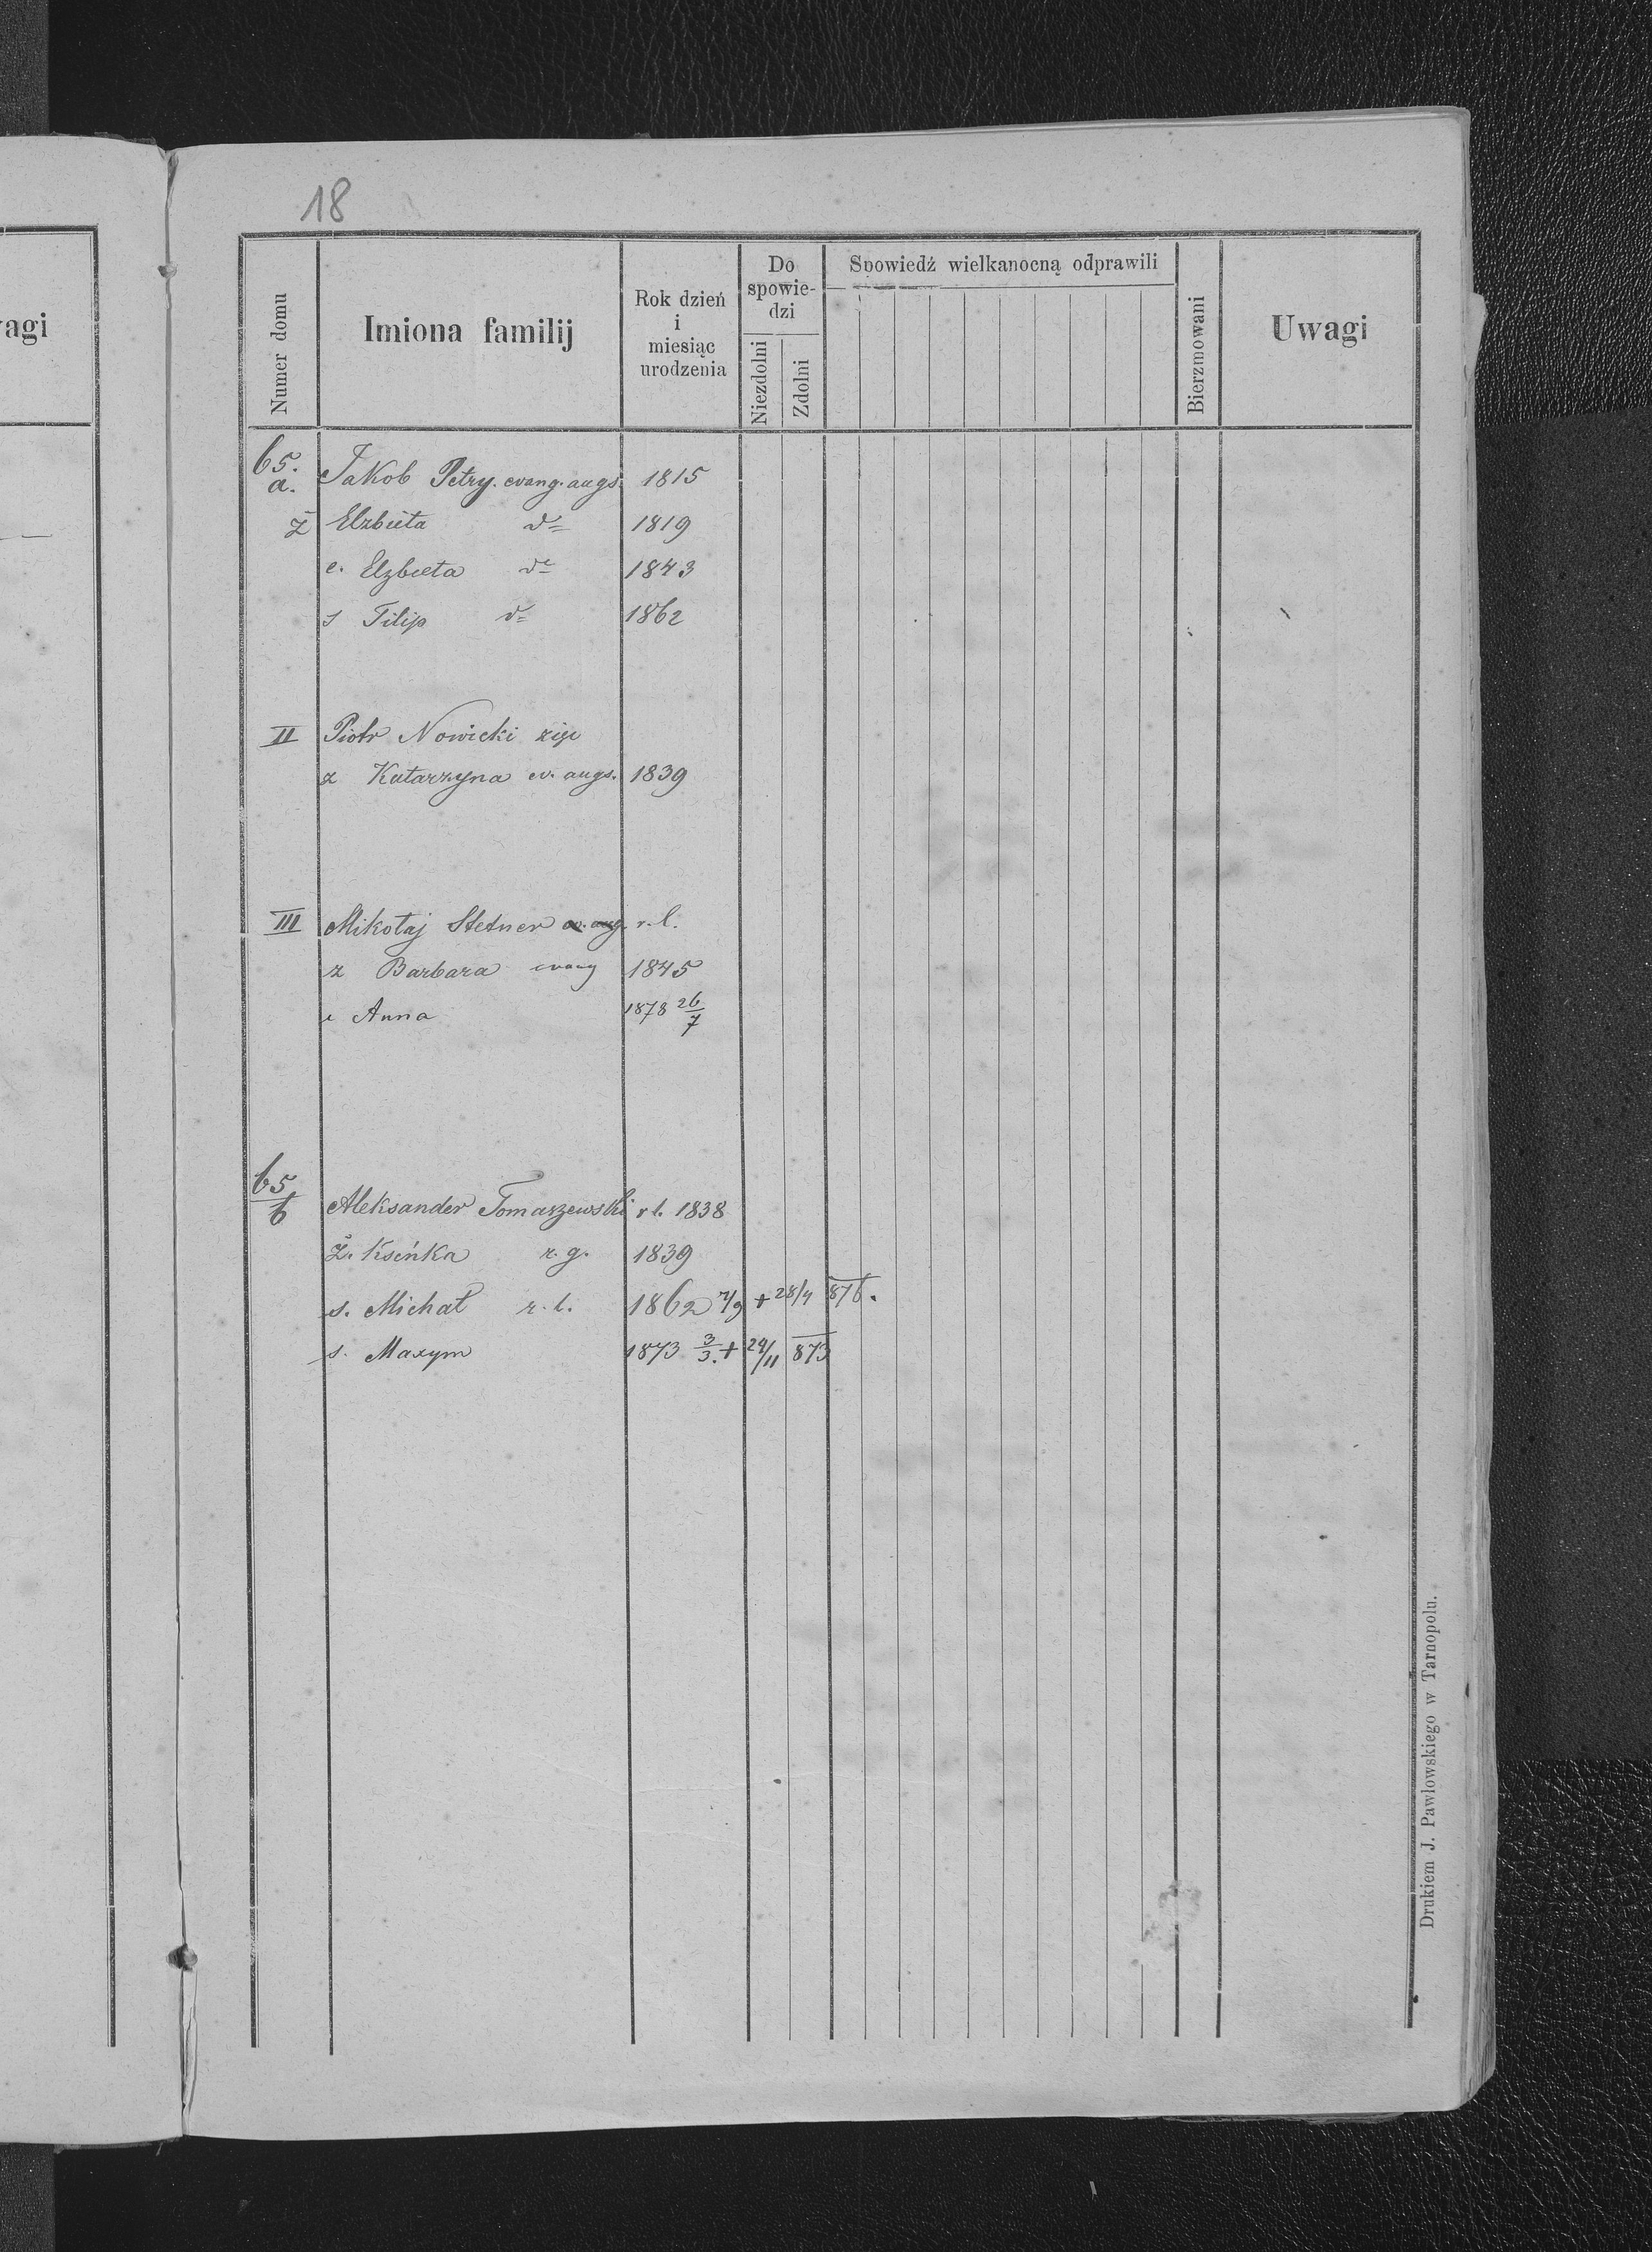 agi
18
Numer domu
Imiona familij
Rok dzień
i
miesiąc
urodzenia
Do
spowie-
dzi
Niezdolni
Zdolni
Spowiedź wielkanocną odprawili
Bierzmowani
Uwagi
65. a. Jakob Petry. evang. augs. 1815
ż Elzbieta 1819
c. Elzbieta 1843
s Filip 1862
II Piotr Nowicki
z Katarzyna ev. augs. 1839
III Mikołaj Stetner ev. aug. r. l.
z Barbara evang 1845
c Anna 1878 26/7
65/b Aleksander Tomaszewski r l. 1838
Ż. Kseńka r. g. 1839
s. Michał r. l. 1862 7/9 + 28/4 876.
s. Maxym 1873 3/3. + 24/11 873
Drukiem J. Pawłowskiego w Tarnopolu.